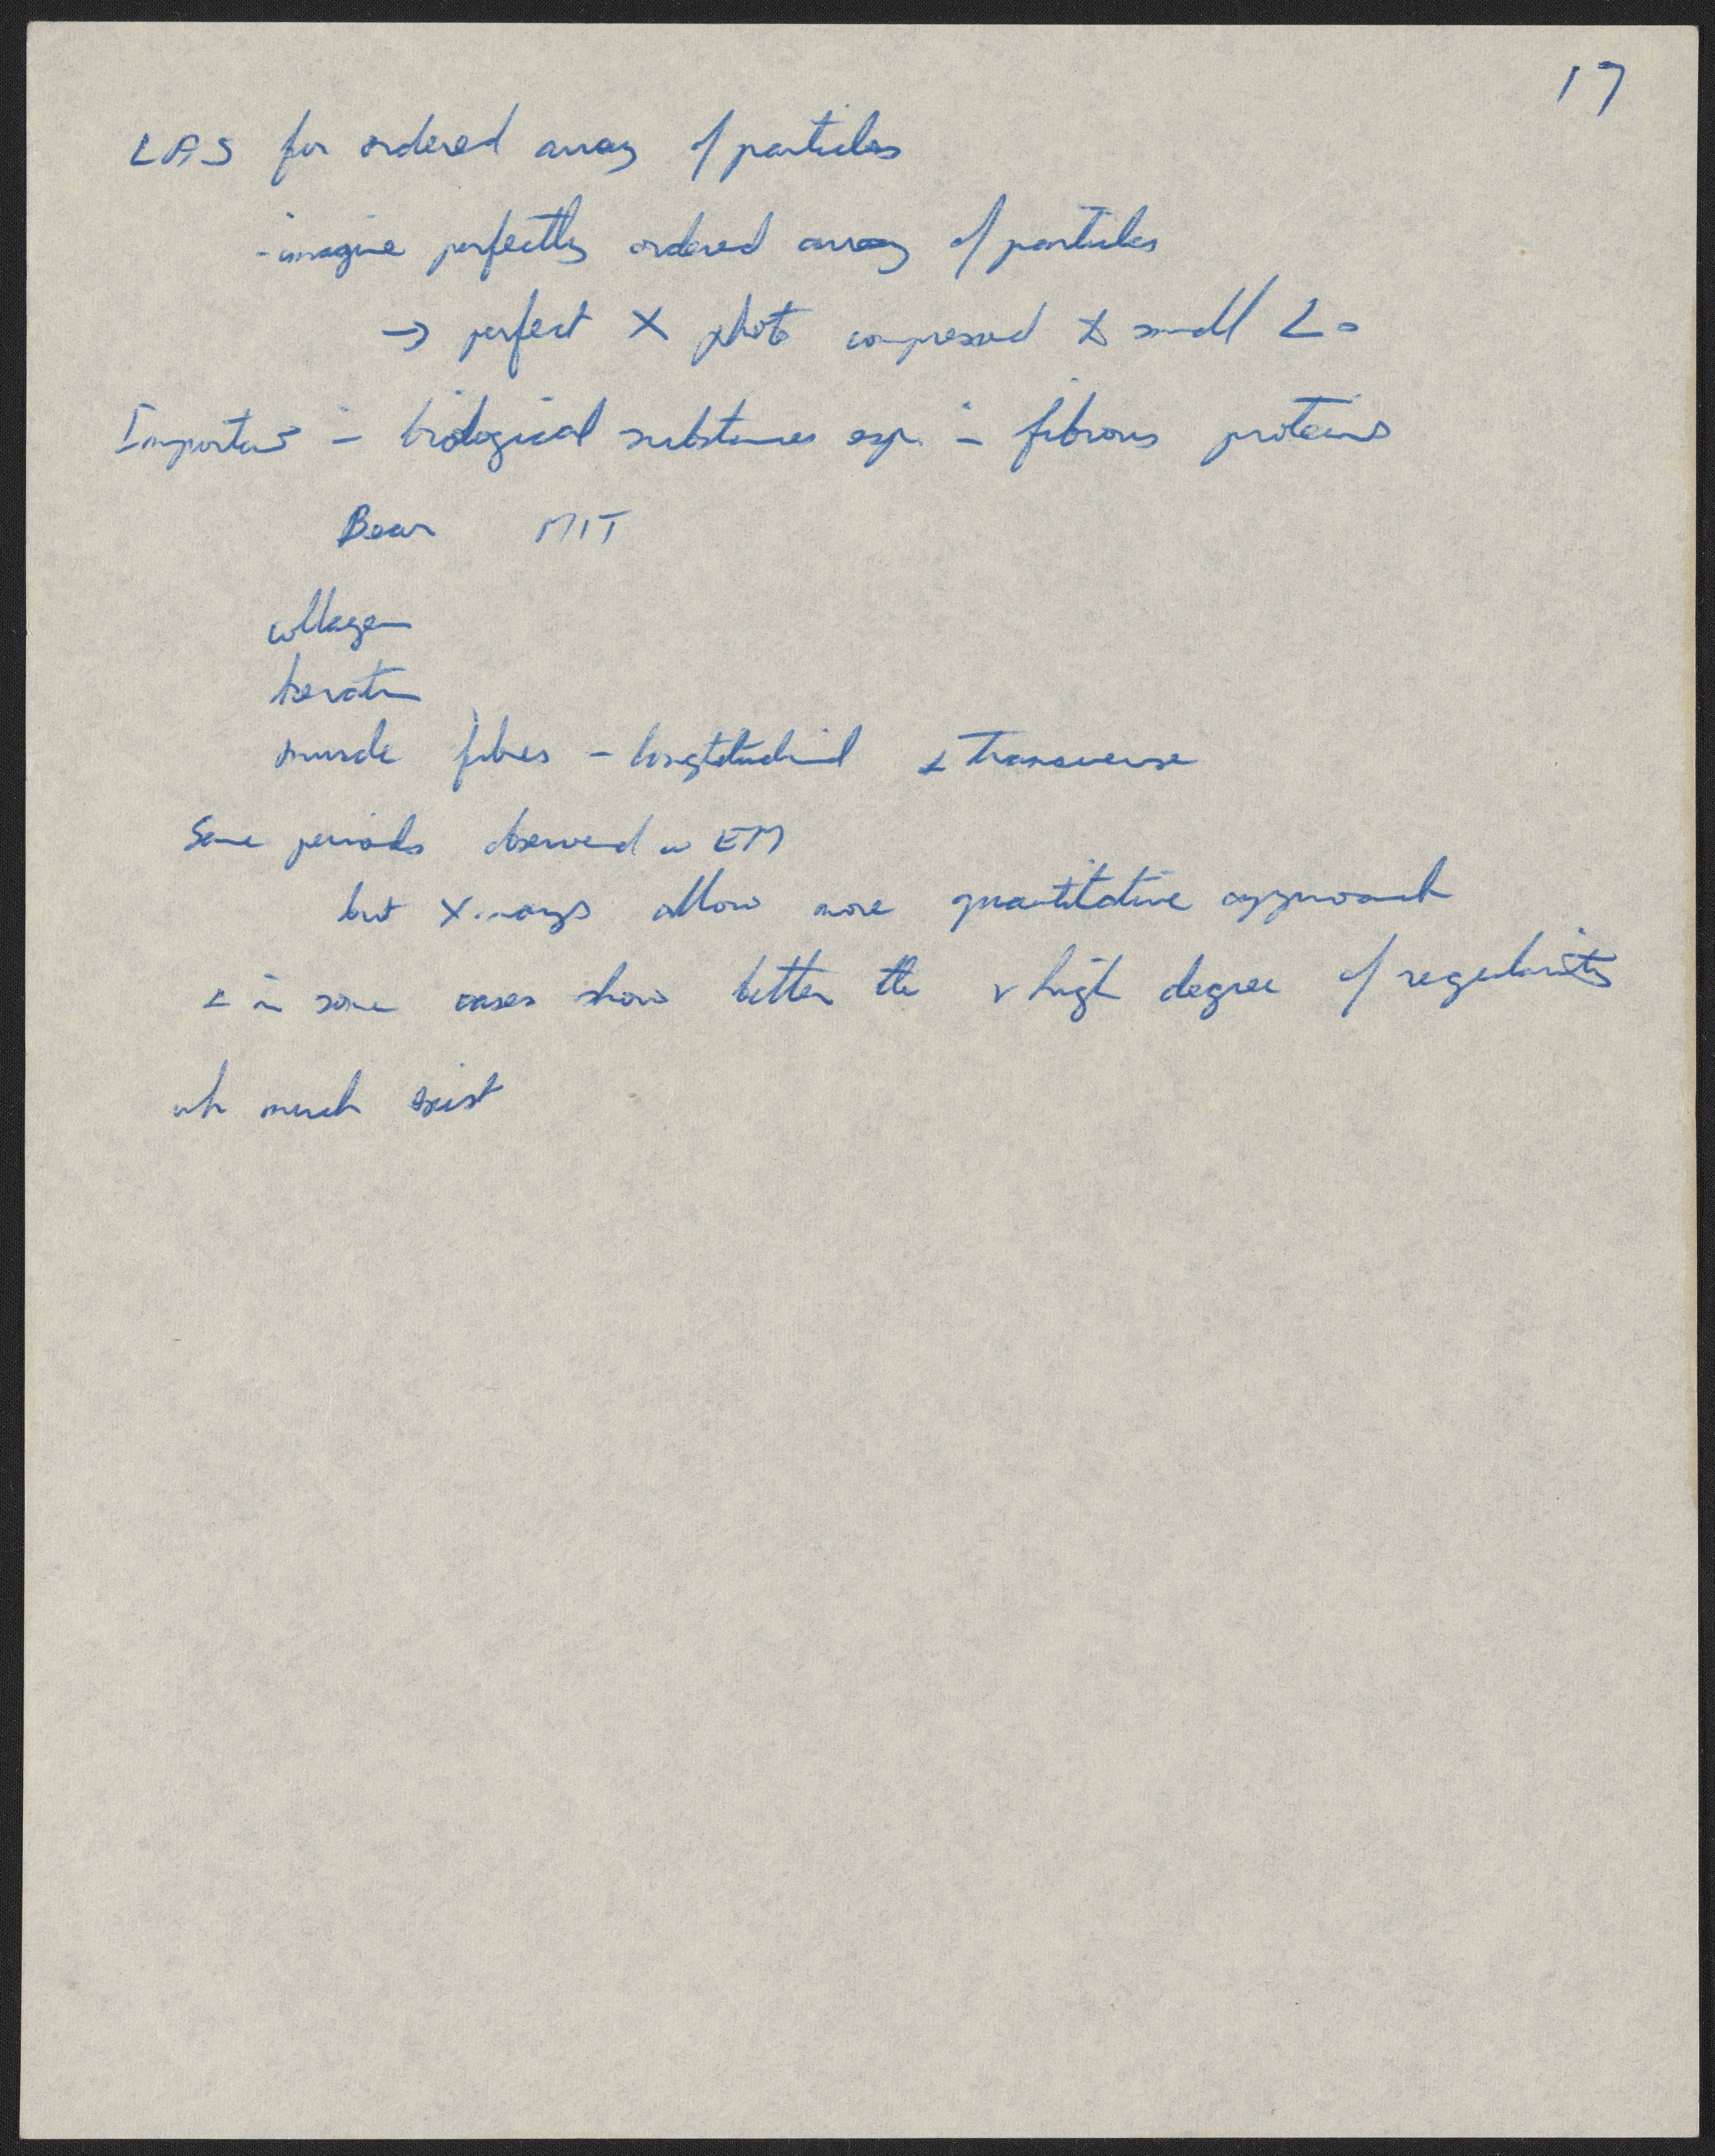 17
LAS for ordered array of particles
- imagine perfectly ordered array of particles
→ perfect X phot compressed to small ∠s
Important in biological substances esp. in fibrous proteins
Bear MIT
collagen
keratin
muscle fibres - longtitudinal & transverse
Same periods observed in EM
but X-rays allow more quantitative approach
& in some cases show better the v high degree of regularity
wh must exist